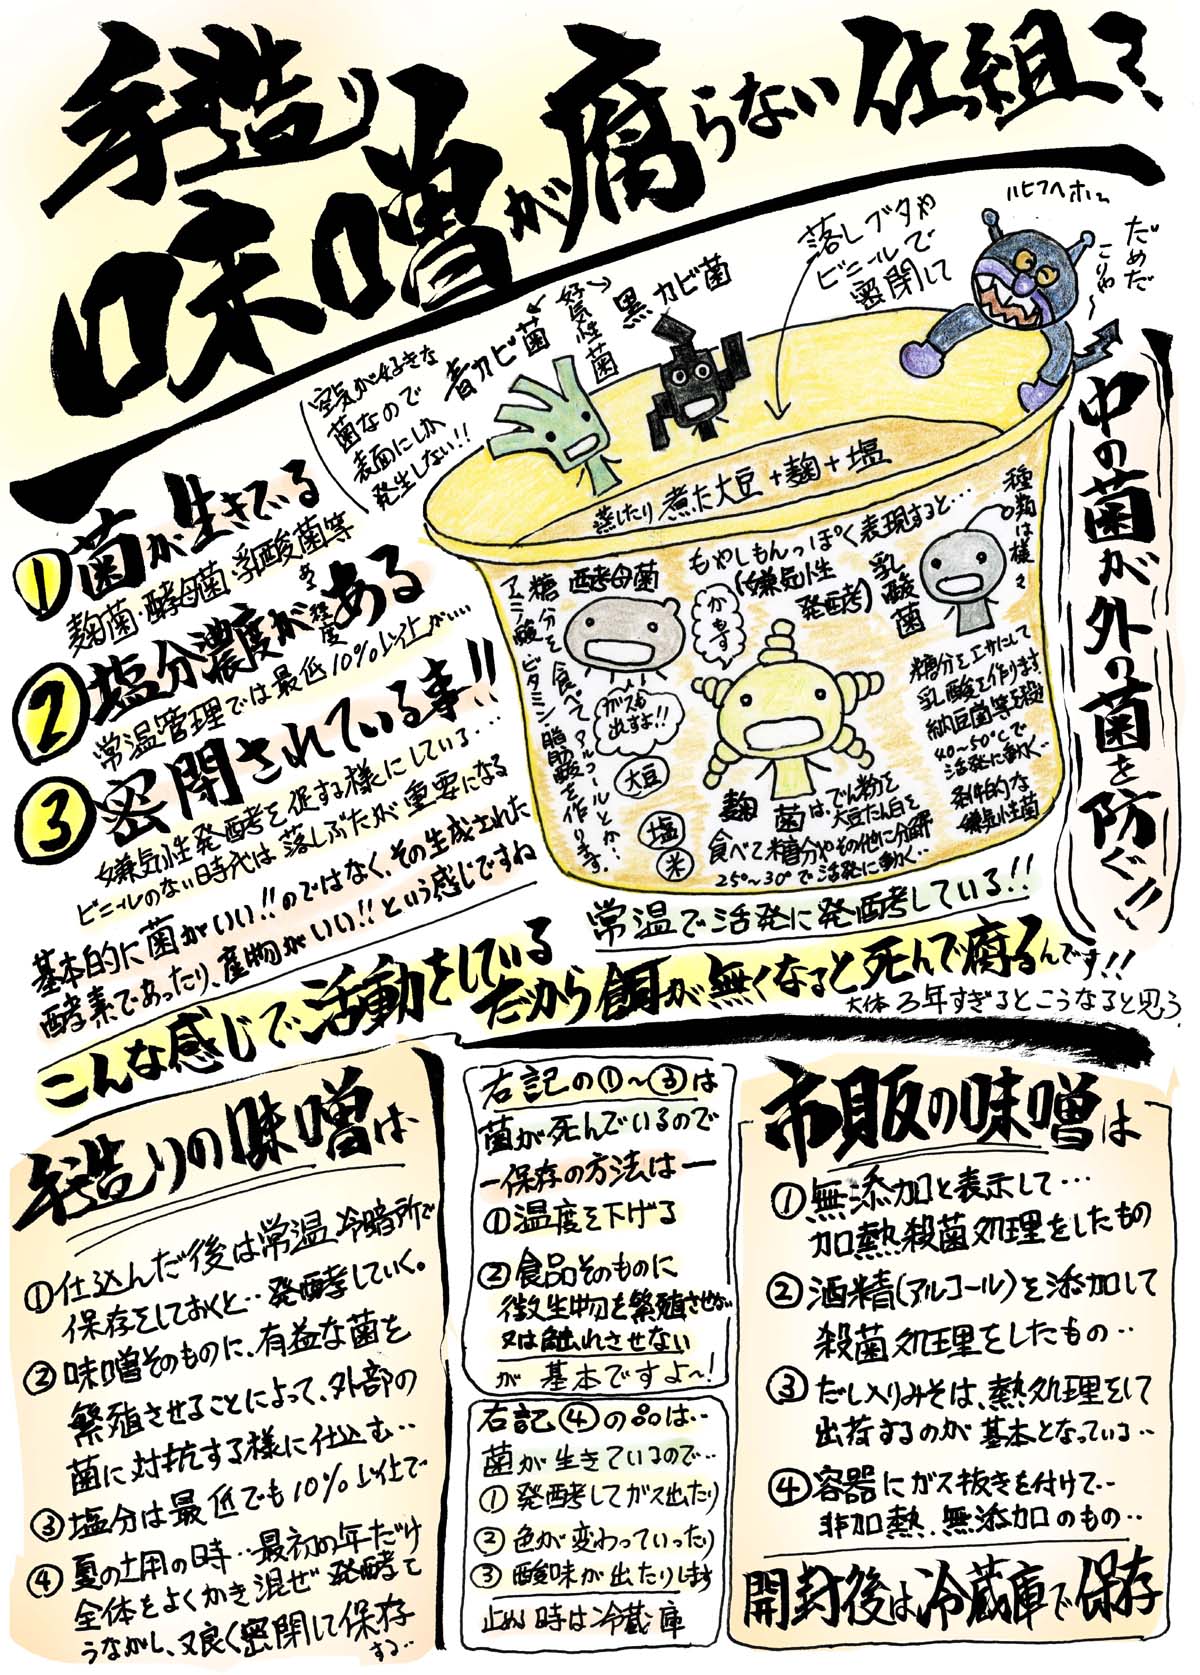 手造り
味噌が腐らない仕組み
ハヒフヘホー
だめだ
こりゃ〜
落しブタや
ビニールで
密閉して
好気性菌
黒カビ菌
青カビ菌
空気が好きな
菌なので
表面にしか
発生しない!!
中の菌が外の菌を防ぐ!!
①菌が生きている
麹菌・酵母菌・乳酸菌等
②塩分濃度がある程度ある
常温管理では最低10%以上がいい
③密閉されている事!!
嫌気性発酵を促す様にしている…
ビニールのない時代は、落しぶたが重要になる
基本的に菌がいい!!のではなく、その生成された
酵素であったり、産物がいい!!という感じですね
蒸したり煮た大豆+麹+塩
もやしもんっぽく表現すると…
(嫌気性
発酵)
種類は様々
酵母菌
糖分を食べてアルコールとか…
アミノ酸、ビタミン・脂肪酸を作ります。
ガスも
出すよ!!
かもす
ぞ!!
乳酸菌
糖分をエサにして
乳酸を作ります
納豆菌等を殺
40〜50℃で
活発に動く…
条件的な
嫌気性菌
大豆
塩
米
麹菌はでん粉を
大豆たん白を
食べて糖分やその他に分解
25°〜30°で活発に動く…
常温で活発に発酵している!!
こんな感じで活動をしている
だから餌が無くなると死んで腐るんです!!
大体3年すぎるとこうなると思う.
手造りの味噌は
①仕込んだ後は常温、冷暗所で
保存をしておくと…発酵していく。
②味噌そのものに、有益な菌を
繁殖させることによって、外部の
菌に対抗する様に仕込む…
③塩分は最低でも10%以上で
④夏の土用の時…最初の年だけ
全体をよくかき混ぜ発酵を
うながし、又良く密閉して保存
する…
右記の①〜③は
菌が死んでいるので
ー保存の方法はー
①温度を下げる
②食品そのものに
微生物を繁殖させない
又は触れさせない
が基本ですよ〜!
右記④の品は…
菌が生きているので…
①発酵してガス出たり
②色が変わっていったり
③酸味が出たりします
止め時は冷蔵庫
市販の味噌は
①無添加と表示して…
加熱殺菌処理をしたもの
②酒精(アルコール)を添加して
殺菌処理をしたもの…
③だし入りみそは、熱処理をして
出荷するのが基本となっている…
④容器にガス抜きを付けて…
非加熱、無添加のもの…
開封後は冷蔵庫で保存